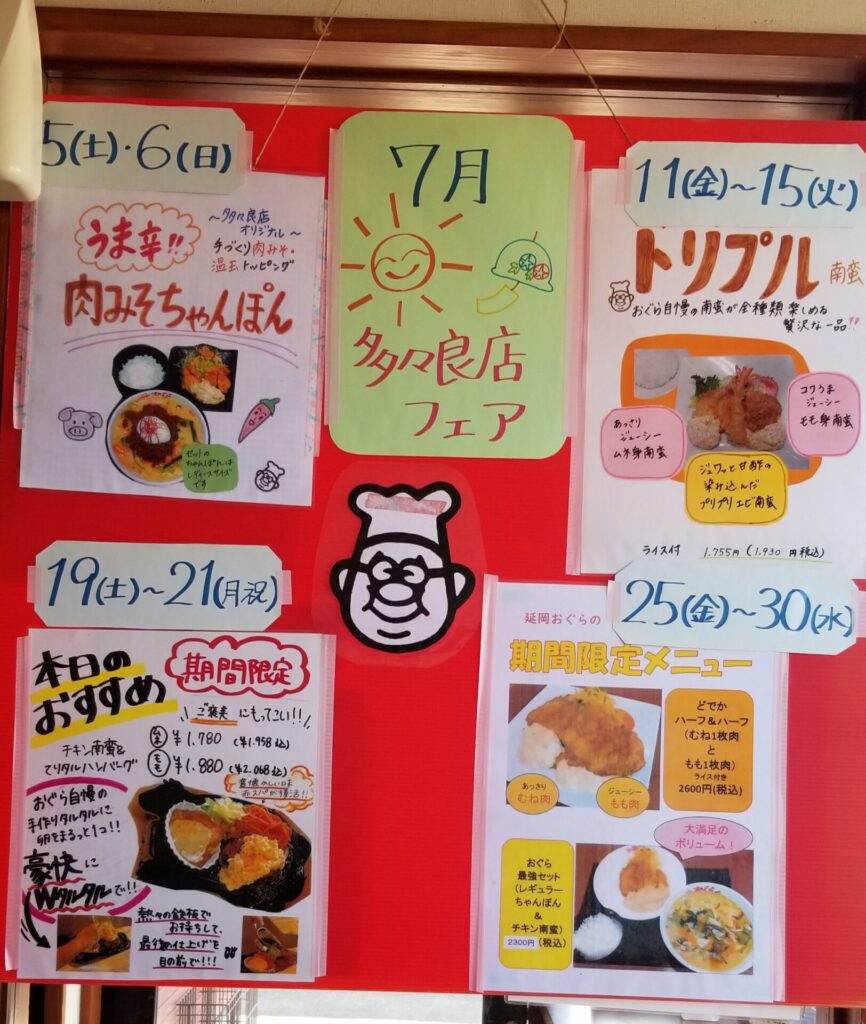 5(土)・6(日)
うま辛!!
〜多々良店
オリジナル〜
手づくり肉みそ・
温玉トッピング
肉みそちゃんぽん
セットの
ちゃんぽんは
レディースサイズ
です
7月
多々良店
フェア
11(金)〜15(火)
トリプル南蛮
おぐら自慢の南蛮が全種類楽しめる
贅沢な一品!!
あっさり
ジューシー
ムネ身南蛮
コクうま
ジューシー
モモ身南蛮
ジュワッと甘酢の
染み込んだ
プリプリエビ南蛮
ライス付 1.755円(1.930円税込)
19(土)〜21(月祝)
本日の
おすすめ
期間限定
ご褒美にもってこい!!
チキン南蛮&
てりタルハンバーグ
ムネ ¥1.780 (¥1.958込)
モモ ¥1.880 (¥2.068込)
昔懐かしい味
赤スパが復活!!
おぐら自慢の
手作りタルタルに
卵をまるっと1コ!!
豪快に
Wタルタルで!!
熱々の鉄板で
お持ちして、
最後の仕上げを
目の前で!!!
25(金)〜30(水)
延岡おぐらの
期間限定メニュー
どでか
ハーフ&ハーフ
(むね1枚肉
と
もも1枚肉)
ライス付き
2600円(税込)
あっさり
むね肉
ジューシー
もも肉
大満足の
ボリューム!
おぐら
最強セット
(レギュラー
ちゃんぽん
&
チキン南蛮)
2300円(税込)